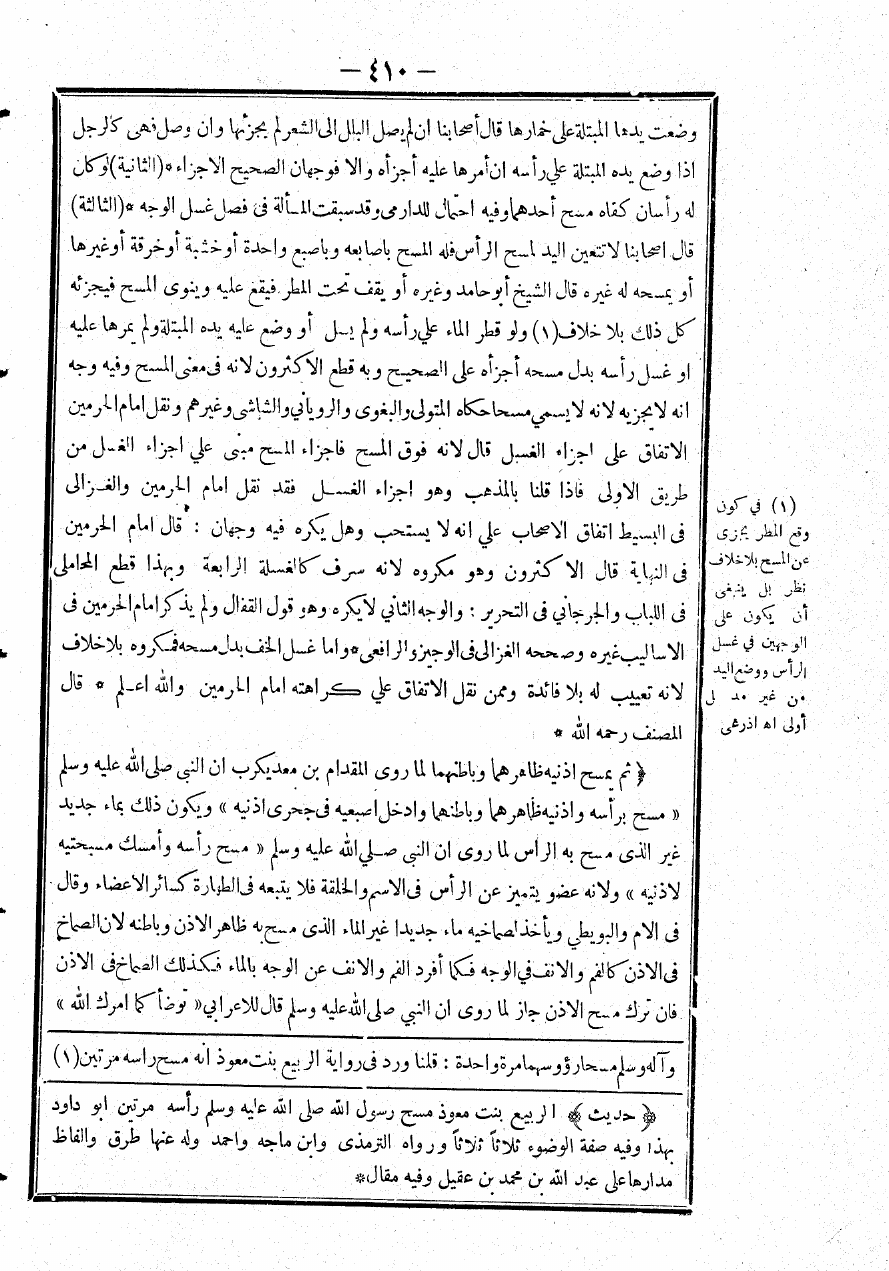 — ٤١٠ —
وضعت يدها المبتلة على خمارها قال أصحابنا ان لم يصل البلل الى الشعر لم يجزئها وان وصل فهى كالرجل
اذا وضع يده المبتلة علي رأسه ان أمرها عليه أجزأه والا فوجهان الصحيح الاجزاء *(الثانية) لوكان
له رأسان كفاه مسح أحدهما وفيه احتمال للدارمى وقد سبقت المسألة فى فصل غسل الوجه *(الثالثة)
قال اصحابنا لا تتعين اليد لمسح الرأس فله المسح باصابعه وباصبع واحدة أو خشبة أو خرقة أو غيرها
أو يمسحه له غيره قال الشيخ أبو حامد وغيره أو يقف تحت المطر فيقع عليه وينوى المسح فيجزئه
كل ذلك بلا خلاف (١) ولو قطر الماء علي رأسه ولم يسل أو وضع عليه يده المبتلة ولم يمرها عليه
او غسل رأسه بدل مسحه أجزأه على الصحيح وبه قطع الاكثرون لانه فى معنى المسح وفيه وجه
انه لا يجزيه لانه لا يسمي مسحا حكاه المتولى والبغوى والرويانى والشاشى وغيرهم ونقل امام الحرمين
الاتفاق على اجزاء الغسل قال لانه فوق المسح فاجزاء المسح مبنى علي اجزاء الغسل من
طريق الاولى فاذا قلنا بالمذهب وهو اجزاء الغسل فقد نقل امام الحرمين والغزالى
فى البسيط اتفاق الاصحاب علي انه لا يستحب وهل يكره فيه وجهان : قال امام الحرمين
فى النهاية قال الاكثرون وهو مكروه لانه سرف كالغسلة الرابعة وبهذا قطع المحاملى
فى اللباب والجرجاني فى التحرير : والوجه الثاني لا يكره وهو قول القفال ولم يذكر امام الحرمين فى
الاساليب غيره وصححه الغزالى فى الوجيز والرافعى * واما غسل الخف بدل مسحه فمكروه بلا خلاف
لانه تعييب له بلا فائدة وممن نقل الاتفاق علي كراهته امام الحرمين والله اعلم * قال
المصنف رحمه الله *
﴿ ثم يمسح اذنيه ظاهرهما وباطنهما لما روى المقدام بن معديكرب ان النبي صلى الله عليه وسلم
« مسح برأسه واذنيه ظاهرهما وباطنهما وادخل اصبعيه فى جحرى اذنيه » ويكون ذلك بماء جديد
غير الذى مسح به الرأس لما روى ان النبي صلي الله عليه وسلم « مسح رأسه وأمسك مسبحتيه
لاذنيه » ولانه عضو يتميز عن الرأس فى الاسم والخلقة فلا يتبعه فى الطهارة كسائر الاعضاء وقال
فى الام والبويطي ويأخذ لصماخيه ماء جديدا غير الماء الذى مسح به ظاهر الاذن وباطنه لان الصماخ
فى الاذن كالفم والانف في الوجه فكما أفرد الفم والانف عن الوجه بالماء فكذلك الصماخ فى الاذن
فان ترك مسح الاذن جاز لما روى ان النبي صلى الله عليه وسلم قال للاعرابي « توضأ كما امرك الله »
وآله وسلم مسحا رؤوسهما مرة واحدة : قلنا ورد فى رواية الربيع بنت معوذ انه مسح راسه مرتين (١)
﴿ حديث ﴾ الربيع بنت معوذ مسح رسول الله صلى الله عليه وسلم رأسه مرتين ابو داود
بهذا وفيه صفة الوضوء ثلاثاً ثلاثاً ورواه الترمذى وابن ماجه واحمد وله عنها طرق والفاظ
مدارها على عبد الله بن محمد بن عقيل وفيه مقال *
(١) في كون
وقع المطر يجزى
عن المسح بلا خلاف
نظر بل ينبغى
أن يكون على
الوجهين في غسل
الرأس ووضع اليد
من غير مد بل
أولى اه اذرعى